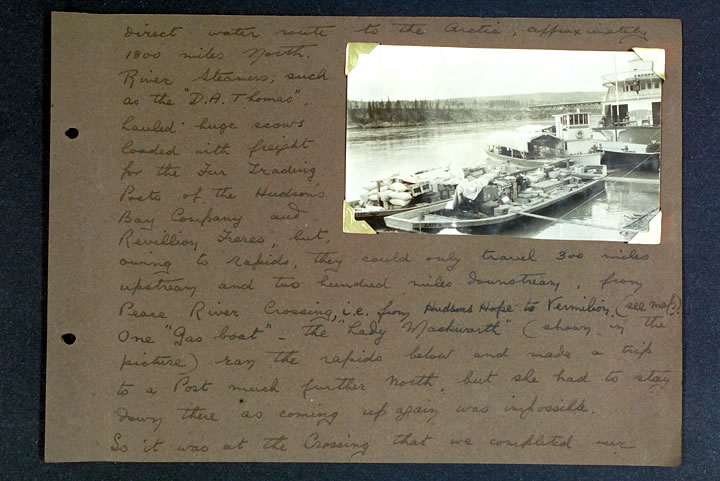 direct water route to the Arctic, approximately
1800 miles North.
River Steamers, such
as the "D.A. Thomas",
hauled huge scows
loaded with freight
for the Fur Trading
Posts of the Hudsons
Bay Company and
Revillion Freres, but,
owing to rapids, they could only travel 300 miles
upstream and two hundred miles downstream, from
Peace River Crossing, i.e. from Hudsons Hope to Vermilion, (see map).
One "Gas boat" - the "Lady Mackworth" (shown in the
picture) ran the rapids below and made a trip
to a Post much further North, but she had to stay
down there as coming up again was impossible.
So it was at the Crossing that we completed our